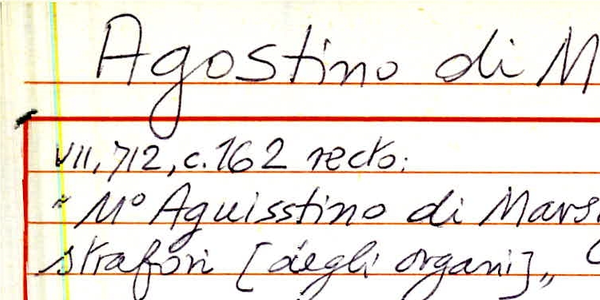 Agostino di M
VII, 712, c. 162 recto:
"Mº Aguisstino di Mars
strafori [degli organi]„